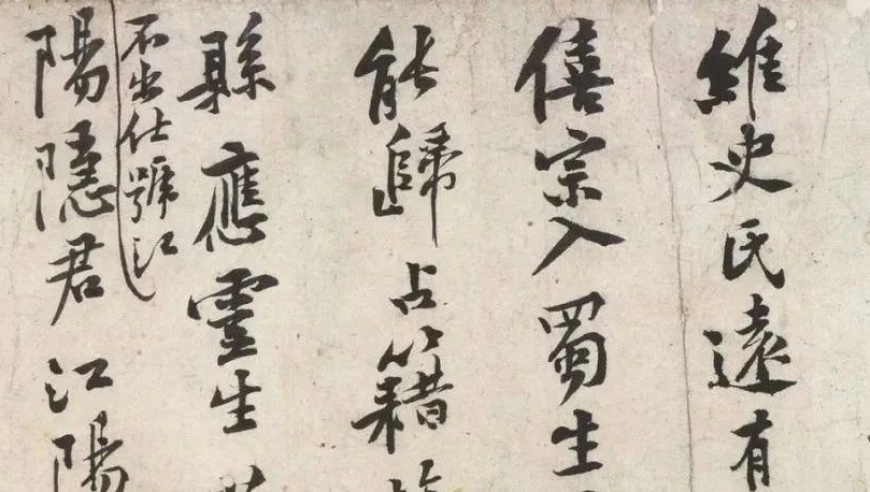 維史氏遠有
僖宗入蜀生
能歸占籍
縣應靈生
不出仕號江
陽隱君江陽